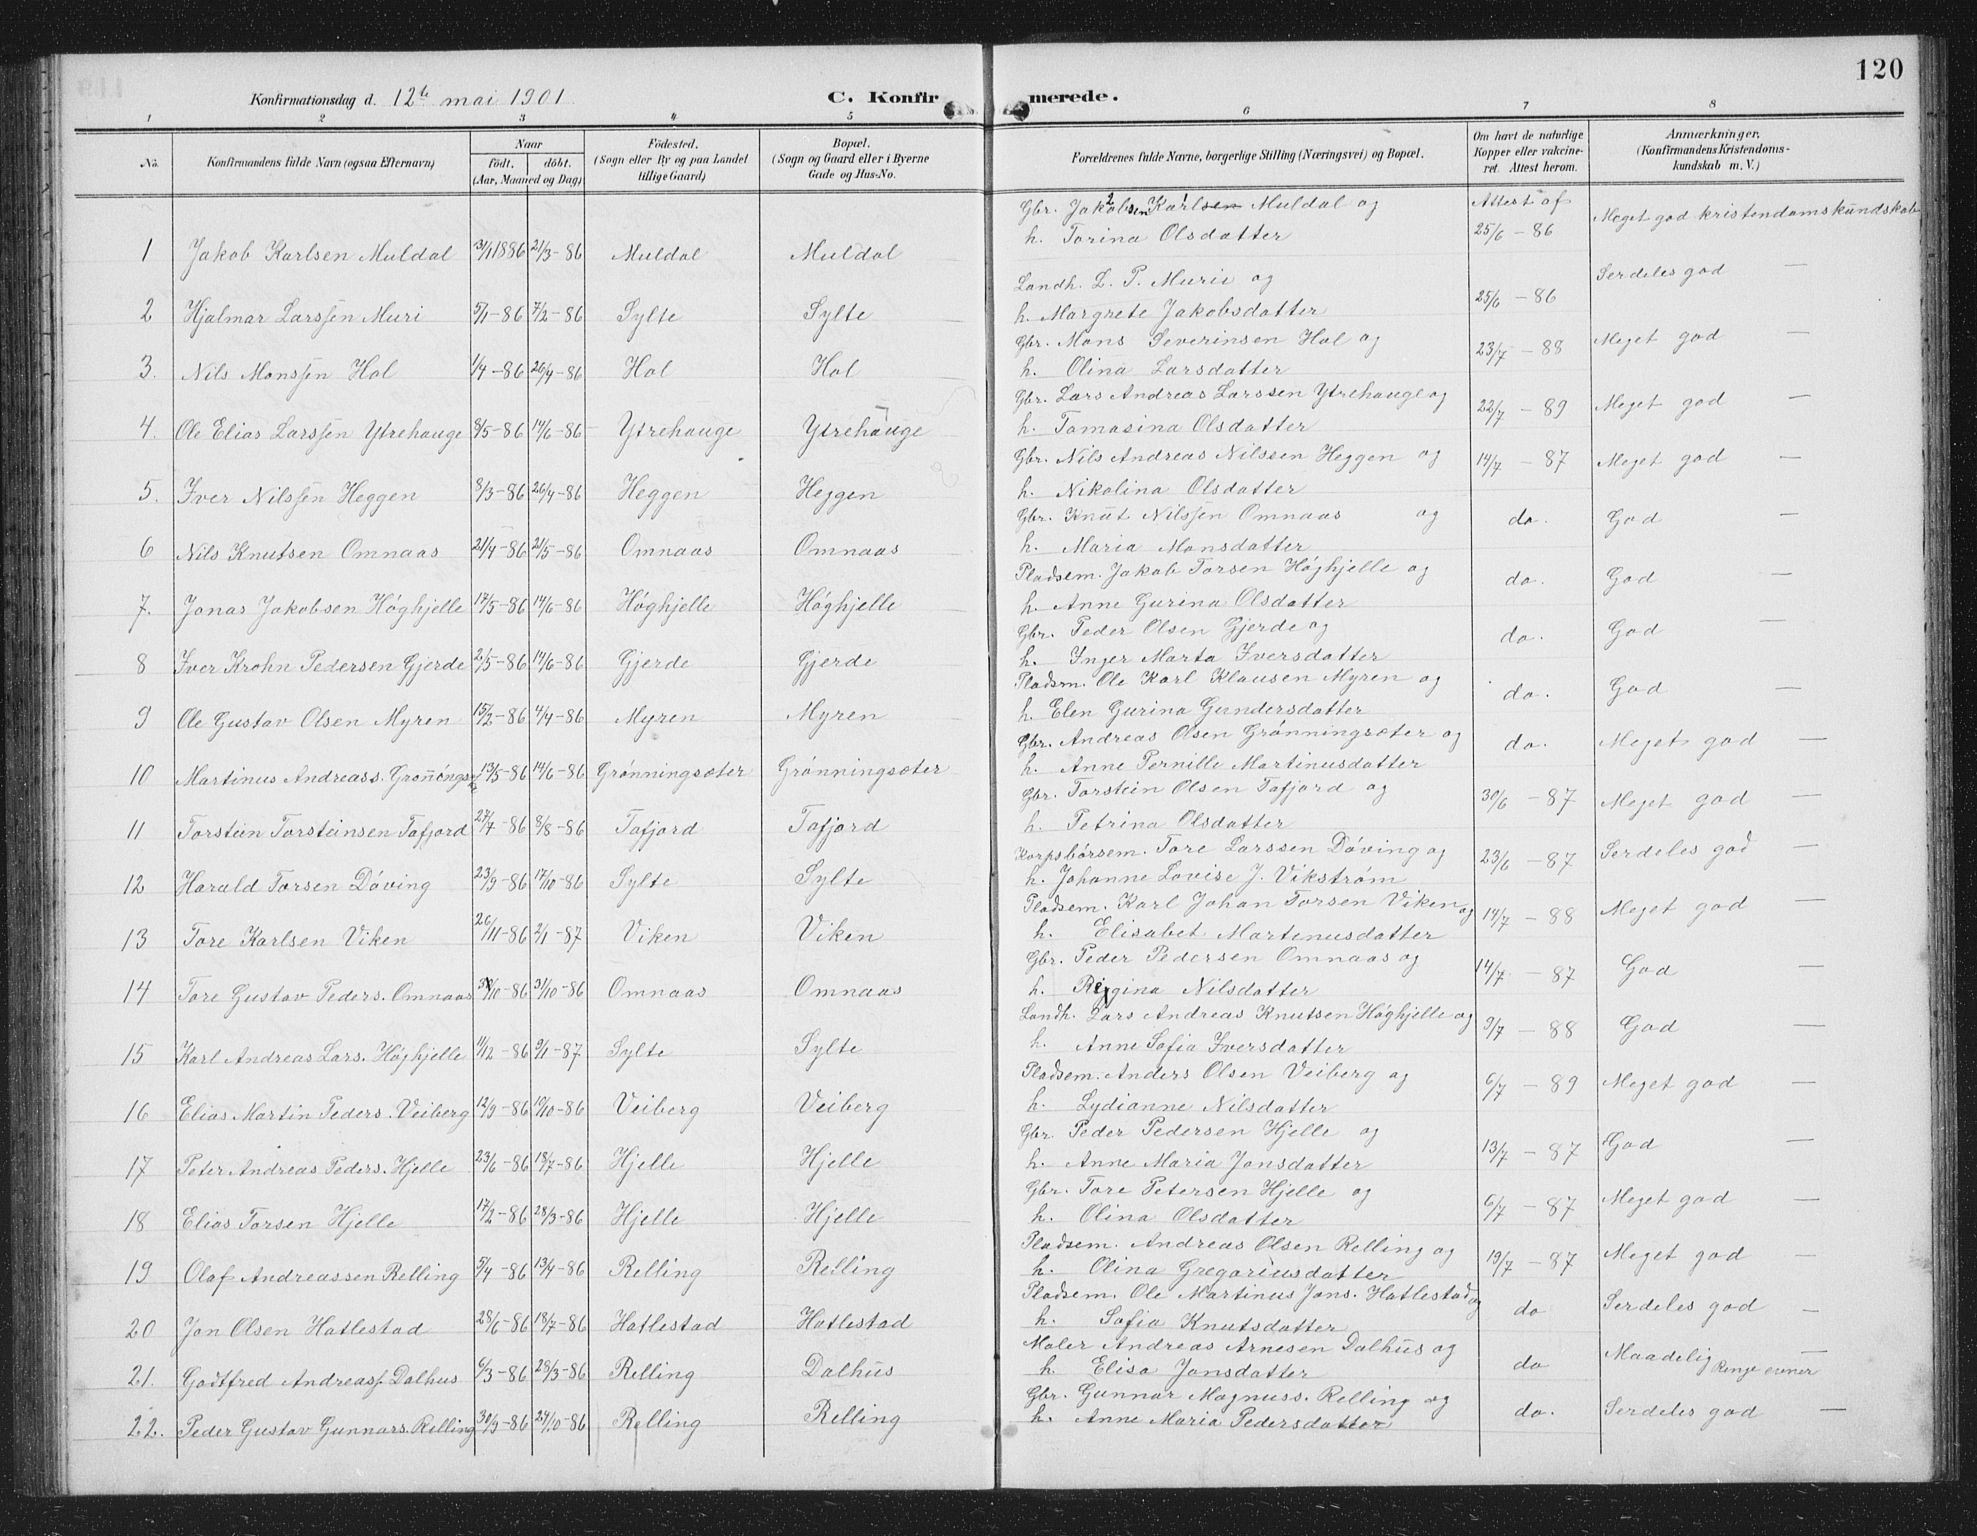 120
Konfirmationsdag d. 12te mai 1901
C. Konfirmerede.
1 2 3 4 5 6 7 8
No. Konfirmandens fulde Navn (ogsaa Efternavn) Naar födt. döbt. (Aar, Maaned og Dag) Födested. (Sogn eller By og paa Landet tillige Gaard) Bopæl. (Sogn og Gaard eller i Byerne Gade og Hus-No. Forældrenes fulde Navne, borgerlige Stilling (Næringsvei) og Bopæl. Om havt de naturlige Kopper eller vakcineret. Attest herom. Anmærkninger. (Konfirmandens Kristendomskundskab m. V.)
1 Jakob Karlsen Muldal 31/1 1886 21/3-86 Muldal Muldal Gbr. Jakobsen Karlsen Muldal og Attest af 25/6-86 Meget god kristendomskundskab
h. Torina Olsdatter
2 Hjalmar Larssen Muri 5/1-86 7/2-86 Sylte Sylte Landh. L. P. Muri og 25/6-86 Serdeles god —
h. Margrete Jakobsdatter
3. Nils Monssen Hol 1/4-86 26/4-86 Hol Hol Gbr. Mons Severinsen Hol og 23/7-88 Meget god —
h. Olina Larsdatter
4. Ole Elias Larssen Ytrehauge 8/5-86 14/6-86 Ytrehauge Ytrehauge Gbr. Lars Andreas Larssen Ytrehauge og 22/7-89 Meget god —
h. Tomasina Olsdatter
5. Iver Nilssen Heggen 8/3-86 26/4-86 Heggen Heggen Gbr. Nils Andreas Nilssen Heggen og 14/7-87 Meget god —
h. Nikolina Olsdatter
6 Nils Knutsen Omnaas 21/4-86 21/5-86 Omnaas Omnaas Gbr. Knut Nilssen Omnaas og do. God —
h. Maria Monsdatter
7. Jonas Jakobsen Höghjelle 17/5-86 14/6-86 Höghjelle Höghjelle Pladsem. Jakob Torsen Höghjelle og do. God —
h. Anne Gurina Olsdatter
8 Iver Krohn Pedersen Gjerde 2/5-86 14/6-86 Gjerde Gjerde Gbr. Peder Olsen Gjerde og do. God —
h. Inger Marta Iversdatter
9 Ole Gustav Olsen Myren 15/2-86 4/4-86 Myren Myren Pladsm. Ole Karl Klausen Myren og do. God —
h. Elen Gurina Gundersdatter
10 Martinus Andreass. 13/5-86 14/6-86 Grönningsæter Grönningsæter Gbr. Andreas Olsen Grönningsæter og do. Meget god —
h. Anne Pernille Martinusdatter
11 Torstein Torsteinsen Tafjord 27/7-86 8/8-86 Tafjord Tafjord Gbr. Torstein Olsen Tafjord og 30/6-87 Meget god —
h. Petrina Olsdatter
12 Harald Torsen Döving 23/9-86 17/10-86 Sylte Sylte Korpsbörsem. Tore Larssen Döving og 23/6-87 Serdeles god —
h. Johanne Lovise J. Vikström
13 Tore Karlsen Viken 26/11-86 2/1-87 Viken Viken Pladsem. Karl Johan Torsen Viken og 14/7-88 Meget god —
h. Elisabet Martinusdatter
14 Tore Gustav Peders. Omnaas /10-86 31/10-86 Omnaas Omnaas Gbr. Peder Pedersen Omnaas og 14/7-87 God —
h. Regina Nilsdatter
15 Karl Andreas Lars. Höghjelle 11/12-86 9/1-87 Sylte Sylte Landh. Lars Andreas Knutsen Höghjelle og 9/7-88 God —
h. Anne Sofia Iversdatter
16 Elias Martin Peders. Veiberg 12/9-86 10/10-86 Veiberg Veiberg Pladsem. Anders Olsen Veiberg og 6/7-89 Meget god —
h. Lydianne Nilsdatter
17 Peter Andreas Peders. Hjelle 23/6-86 18/7-86 Hjelle Hjelle Gbr. Peder Pedersen Hjelle og 13/7-87 God —
h. Anne Maria Jonsdatter
18 Elias Torsen Hjelle 17/2-86 28/3-86 Hjelle Hjelle Gbr. Tore Petersen Hjelle og 6/7-87 Meget god —
h. Olina Olsdatter
19 Olaf Andreassen Relling 5/4-86 13/4-86 Relling Relling Pladsem. Andreas Olsen Relling og 19/7-87 Meget god —
h. Olina Gregoriusdatter
20 Jon Olsen Hatlestad 28/6-86 18/7-86 Hatlestad Hatlestad Pladsem. Ole Martinus Jons. Hatlestad og do Serdeles god —
h. Sofia Knutsdatter
21. Godtfred Andreass. Dalhus 6/3-86 28/3-86 Relling Dalhus Maler Andreas Arnesen Dalhus og do Maadelig Ringe evner —
h. Elisa Jonsdatter
22. Peder Gustav Gunnars. Relling 30/9-86 24/10-86 Relling Relling Gbr. Gunnar Magnuss. Relling og do. Serdeles god —
h. Anne Maria Pedersdatter